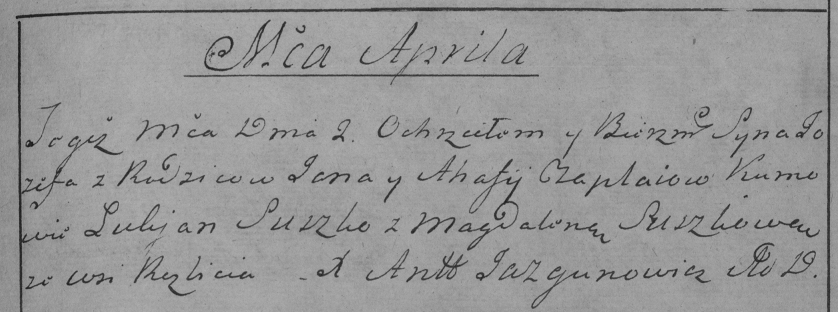 Mča Aprila
Togóż Mča Dnia 2. Ochrzciłem y Bierzm Syna Jo
zefa z Rodzicow Jana y Ahafij Czaplaiow Kumo
wie Lulijan Suszko z Magdaloną Suszkową
ze wsi X Antt Jazgunowicz